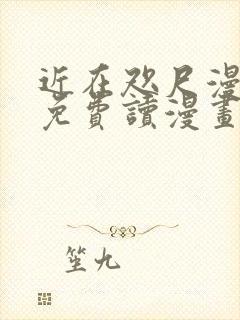 近在咫尺漫
免費讀漫畫
笙九